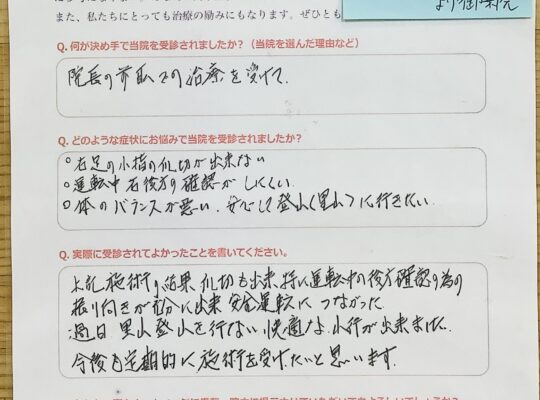 また、私たちにとっても治療の励みにもなります。ぜひとも
より御来院
Q. 何が決め手で当院を受診されましたか？（当院を選んだ理由など）
院長の前職での治療を受けて.
Q. どのような症状にお悩みで当院を受診されましたか？
○右足の小指の爪切が出来ない
○運転中右後方の確認がしにくい
○体のバランスが悪い. 安心して登山（里山）に行きたい.
Q. 実際に受診されてよかったことを書いてください。
上記施術の結果 爪切も出来. 特に運転中の後方確認の為の
振り向きが充分に出来 安全運転につながった.
過日. 里山登山を行ない快適な山行が出来ました.
今後も定期的に施術を受けたいと思います.